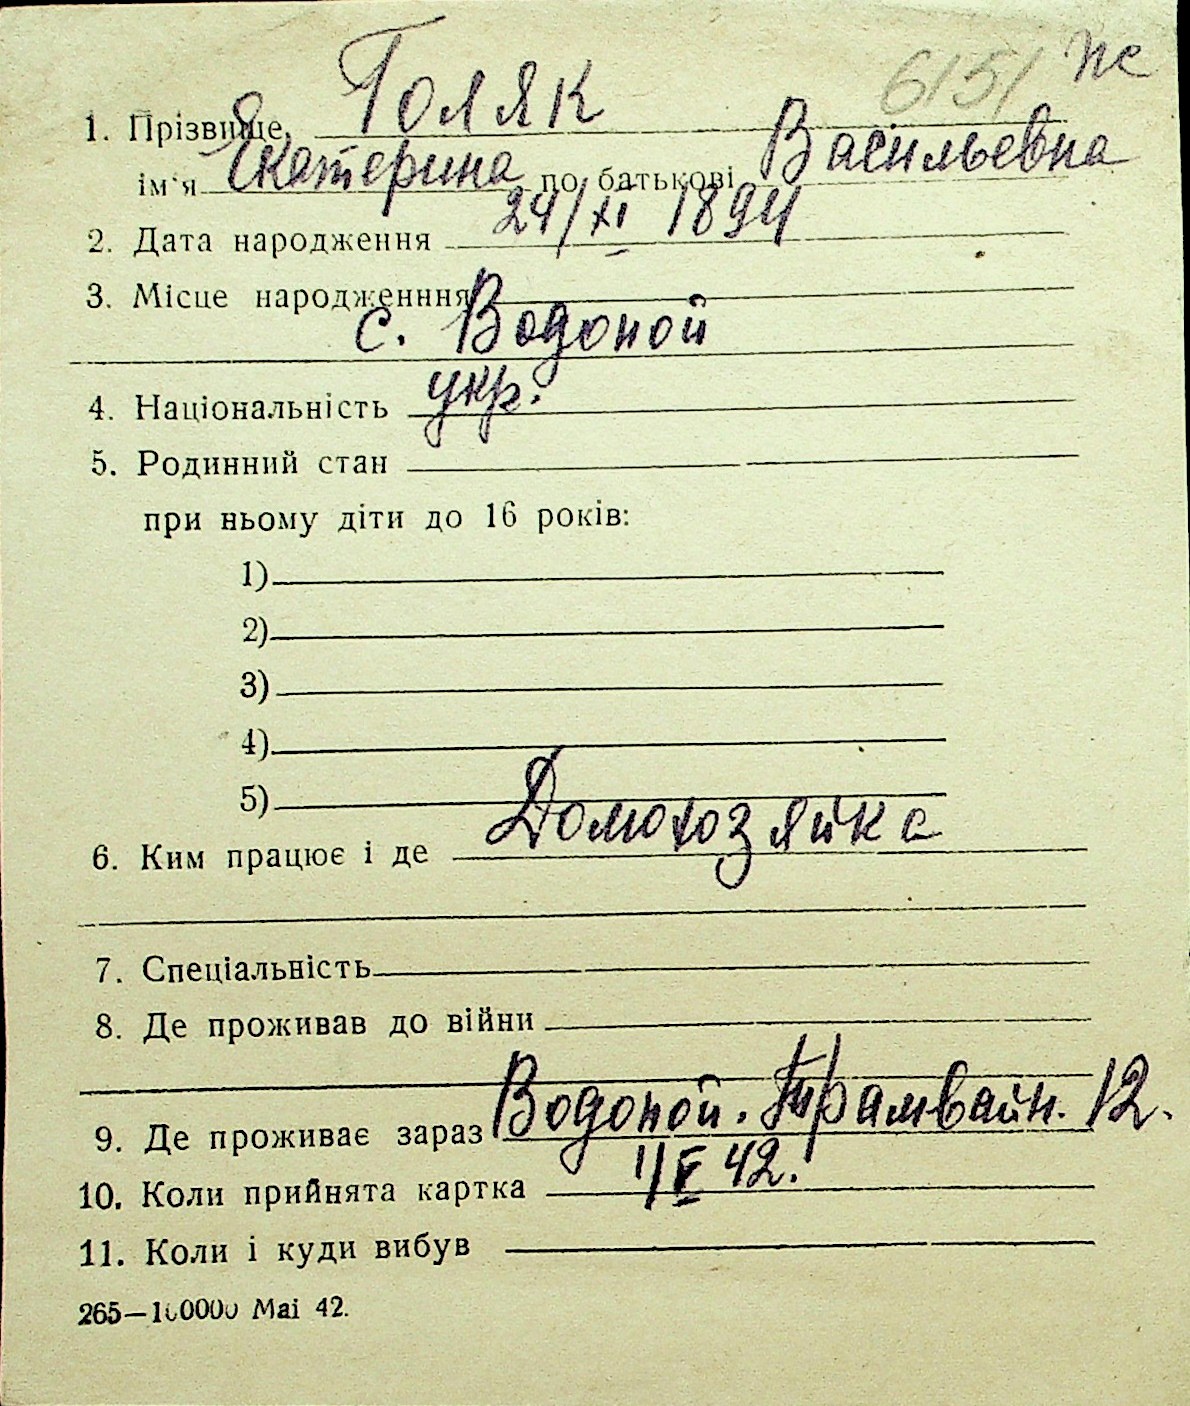 6151 же
1. Прізвище, Голяк
ім'я Екатерина по батькові Васильевна
2. Дата народження 24/XI 1894
3. Місце народженння
с. Водопой
4. Національність укр.
5. Родинний стан
при ньому діти до 16 років:
1)
2)
3)
4)
5)
6. Ким працює і де Домохозяйка
7. Спеціальність
8. Де проживав до війни
9. Де проживає зараз Водопой. Трамвайн. 12.
10. Коли прийнята картка 1/V 42.
11. Коли і куди вибув
265—100000 Mai 42.